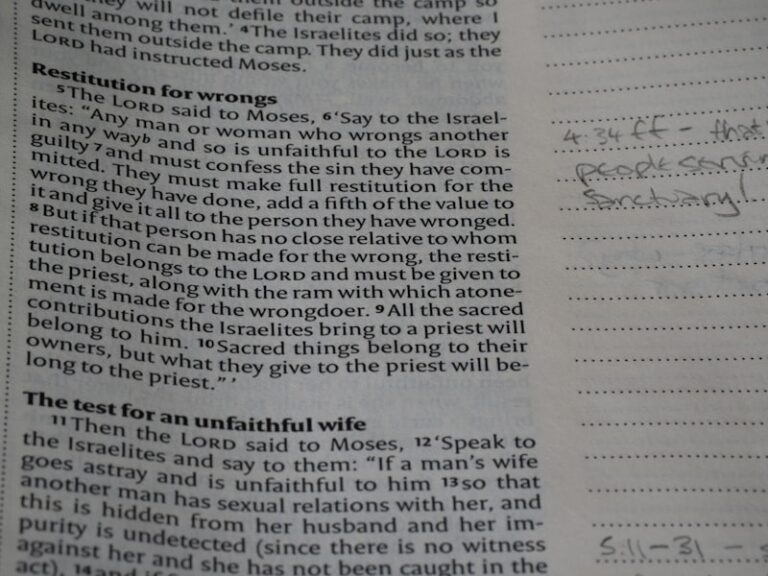 they will not defile their camp, where I
dwell among them.' 4 The Israelites did so; they
sent them outside the camp. They did just as the
LORD had instructed Moses.
Restitution for wrongs
5 The LORD said to Moses, 6 'Say to the Israel-
ites: "Any man or woman who wrongs another
in any way b and so is unfaithful to the LORD is
guilty 7 and must confess the sin they have com-
mitted. They must make full restitution for the
wrong they have done, add a fifth of the value to
it and give it all to the person they have wronged.
8 But if that person has no close relative to whom
restitution can be made for the wrong, the resti-
tution belongs to the LORD and must be given to
the priest, along with the ram with which atone-
ment is made for the wrongdoer. 9 All the sacred
contributions the Israelites bring to a priest will
belong to him. 10 Sacred things belong to their
owners, but what they give to the priest will be-
long to the priest." '
The test for an unfaithful wife
11 Then the LORD said to Moses, 12 'Speak to
the Israelites and say to them: "If a man's wife
goes astray and is unfaithful to him 13 so that
another man has sexual relations with her, and
this is hidden from her husband and her im-
purity is undetected (since there is no witness
against her and she has not been caught in the
act), 14 and if
4:34 ff - that
people
sanctuary!
5:11-31 -